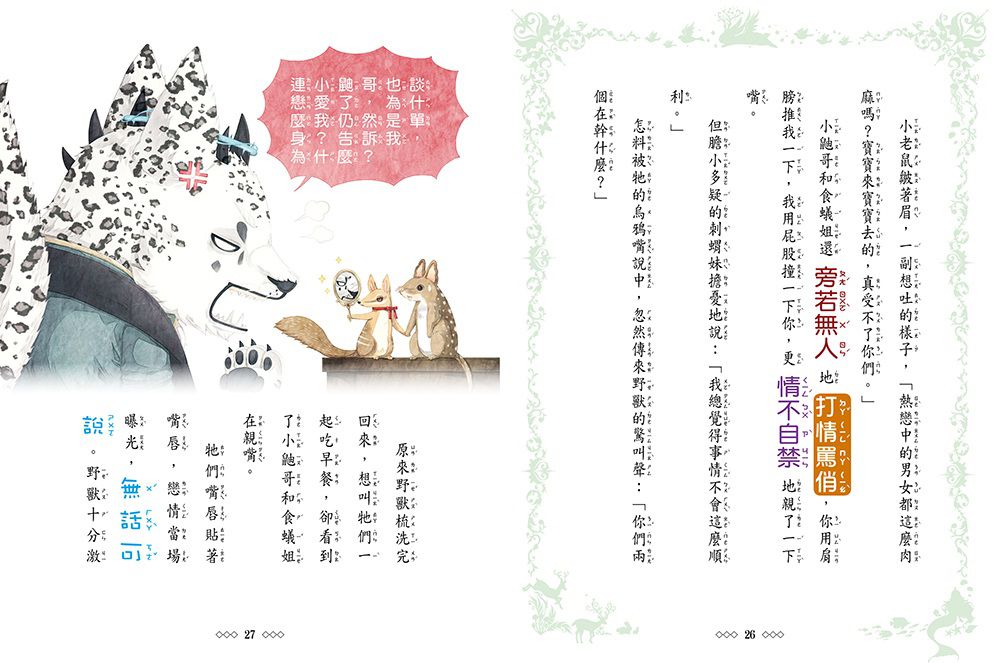 小老鼠皺著眉,一副想吐的樣子,「熱戀中的男女都這麼肉
麻嗎?寶寶來寶寶去的,真受不了你們。」
小鼬哥和食蟻姐還旁若無人地打情罵俏,你用肩
膀推我一下,我用屁股撞一下你,更情不自禁地親了一下
嘴。
但膽小多疑的刺蝟妹擔憂地說:「我總覺得事情不會這麼順
利。」
怎料被牠的烏鴉嘴說中,忽然傳來野獸的驚叫聲:「你們兩
個在幹什麼?」
26
連小鼬哥也談
戀愛了,為什
麼我仍然是單
身?告訴我,
為什麼?
原來野獸梳洗完
回來,想叫牠們一
起吃早餐,卻看到
了小鼬哥和食蟻姐
在親嘴。
牠們嘴唇貼著
嘴唇,戀情當場
曝光,無話可
說。野獸十分激
27